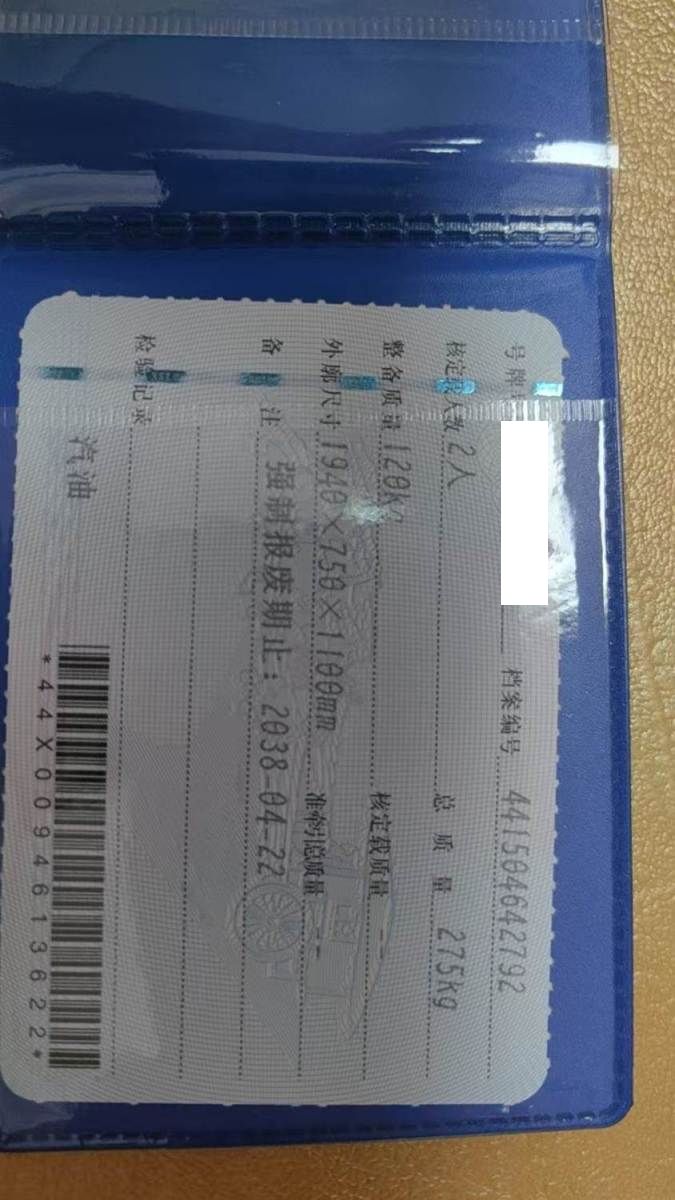 号牌号 档案编号 441504642792
核定载人数 2人 总质量 275kg
整备质量 120kg 核定载质量 --
外廓尺寸 1940×750×1100mm 准牵引总质量 --
备注 强制报废期止：2038-04-22
检验记录
汽油
*44X0094613622*